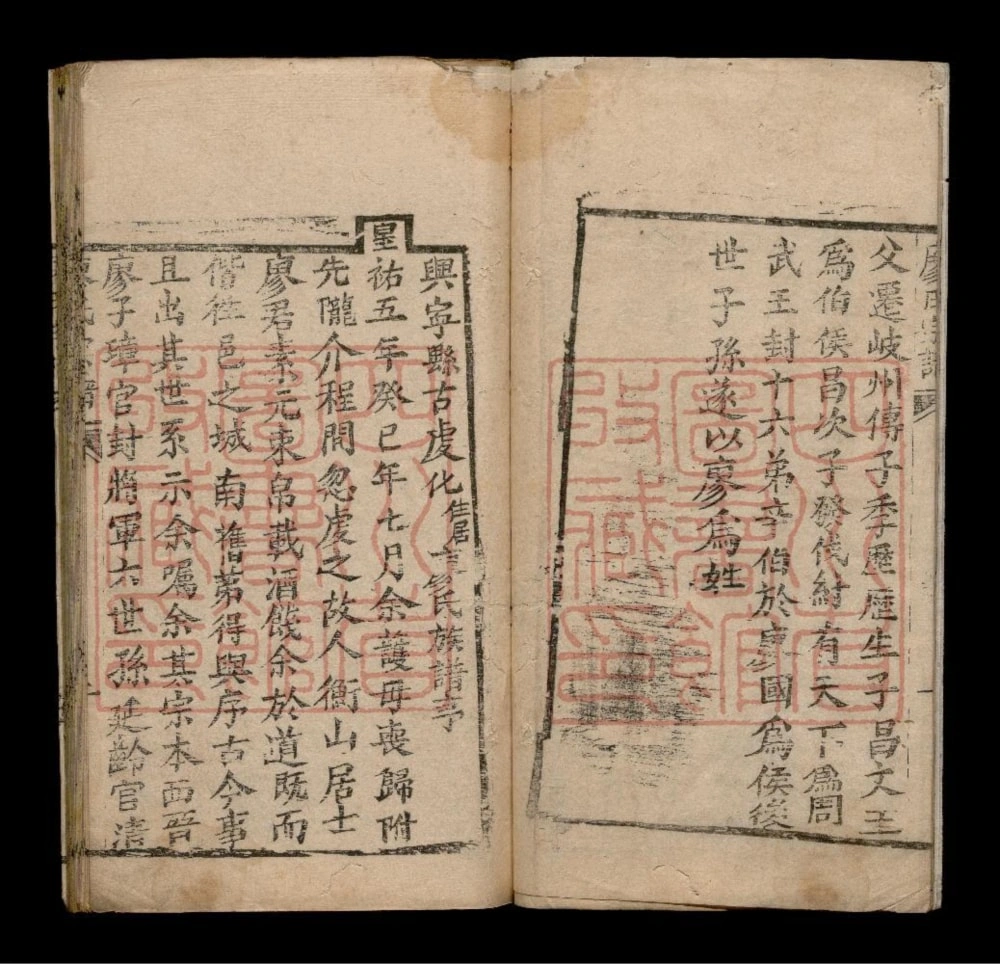 父遷岐州傳子季歷歷生子昌文王
爲伯侯昌次子發伐紂有天下爲周
武王封十六弟辛伯於廖國爲侯後
世子孫遂以廖爲姓
興寕縣古虔化隹居廖氏族譜序
皇祐五年癸巳年七月余護毋喪歸附
先隴介程間忽虔之故人衡山居士
廖君素元束帛載酒餞余於道既而
偕徃邑之城南舊第得與序古今事
且出其世系示余囑余其宗本西晉
廖子璋官封將軍六世孫延齡官清